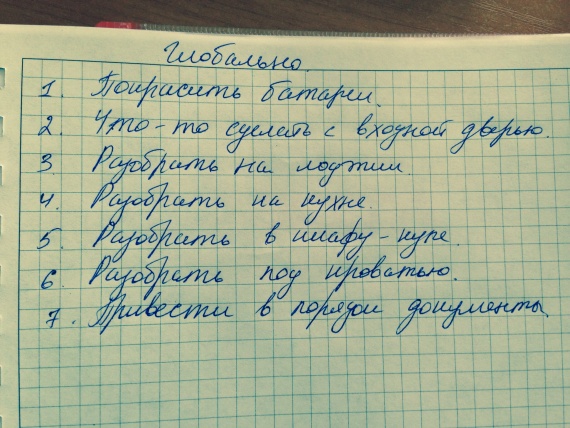 Глобально.
1. Покрасить батареи.
2. Что-то сделать с входной дверью.
3. Разобрать на лоджии.
4. Разобрать на кухне.
5. Разобрать в шкафу-купе.
6. Разобрать под кроватью.
7. Привести в порядок документы.